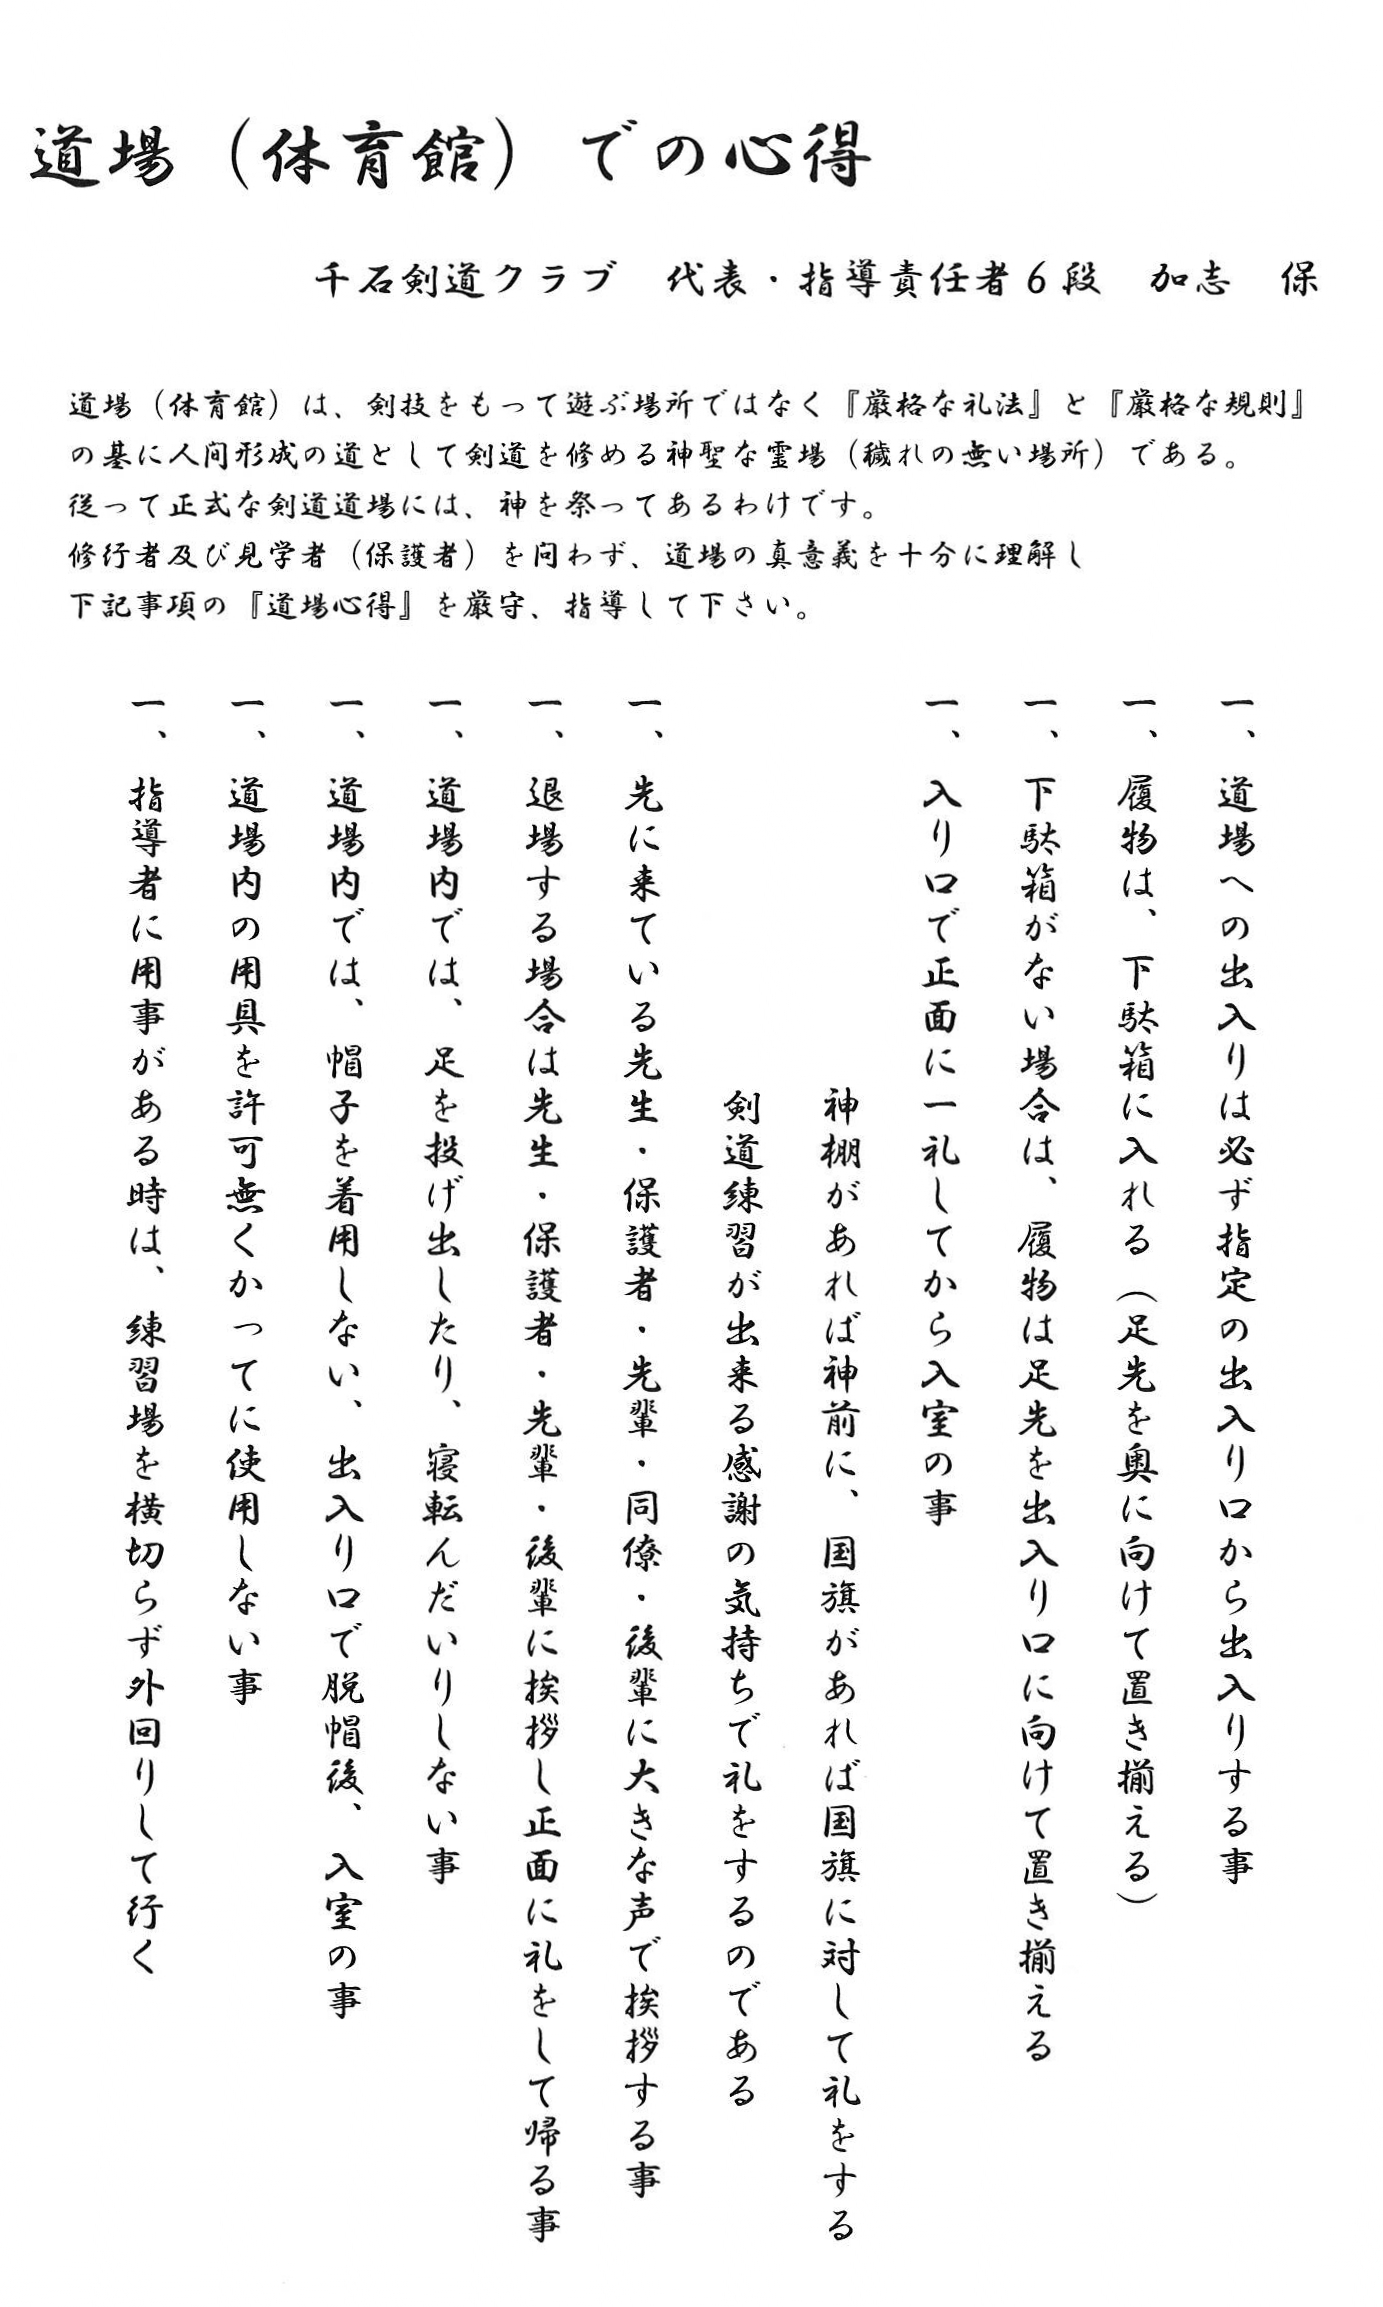 道場（体育館）での心得
千石剣道クラブ　代表・指導責任者６段　加志　保
道場（体育館）は、剣技をもって遊ぶ場所ではなく『厳格な礼法』と『厳格な規則』
の基に人間形成の道として剣道を修める神聖な霊場（穢れの無い場所）である。
従って正式な剣道道場には、神を祭ってあるわけです。
修行者及び見学者（保護者）を問わず、道場の真意義を十分に理解し
下記事項の『道場心得』を厳守、指導して下さい。
一、道場への出入りは必ず指定の出入り口から出入りする事
一、履物は、下駄箱に入れる（足先を奥に向けて置き揃える）
一、下駄箱がない場合は、履物は足先を出入り口に向けて置き揃える
一、入り口で正面に一礼してから入室の事
神棚があれば神前に、国旗があれば国旗に対して礼をする
剣道練習が出来る感謝の気持ちで礼をするのである
一、先に来ている先生・保護者・先輩・同僚・後輩に大きな声で挨拶する事
一、退場する場合は先生・保護者・先輩・後輩に挨拶し正面に礼をして帰る事
一、道場内では、足を投げ出したり、寝転んだいりしない事
一、道場内では、帽子を着用しない、出入り口で脱帽後、入室の事
一、道場内の用具を許可無くかってに使用しない事
一、指導者に用事がある時は、練習場を横切らず外回りして行く